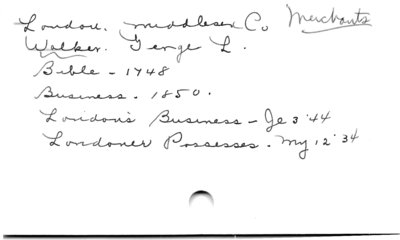 London. Middlesex Co. Merchants
Walker. George L.
Bible - 1748
Business - 1850.
London's Business - Je 3 '44
Londoner Possesses - My 12 '34